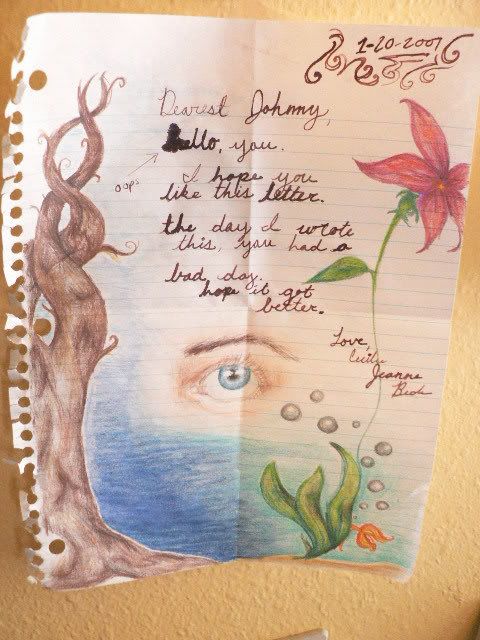 1-20-2007
Dearest Dohnny,
hello, you.
oops
I hope you
like this letter.
the day I wrote
this, you had a
bad day.
hope it got
better.
Love,
Jeanne